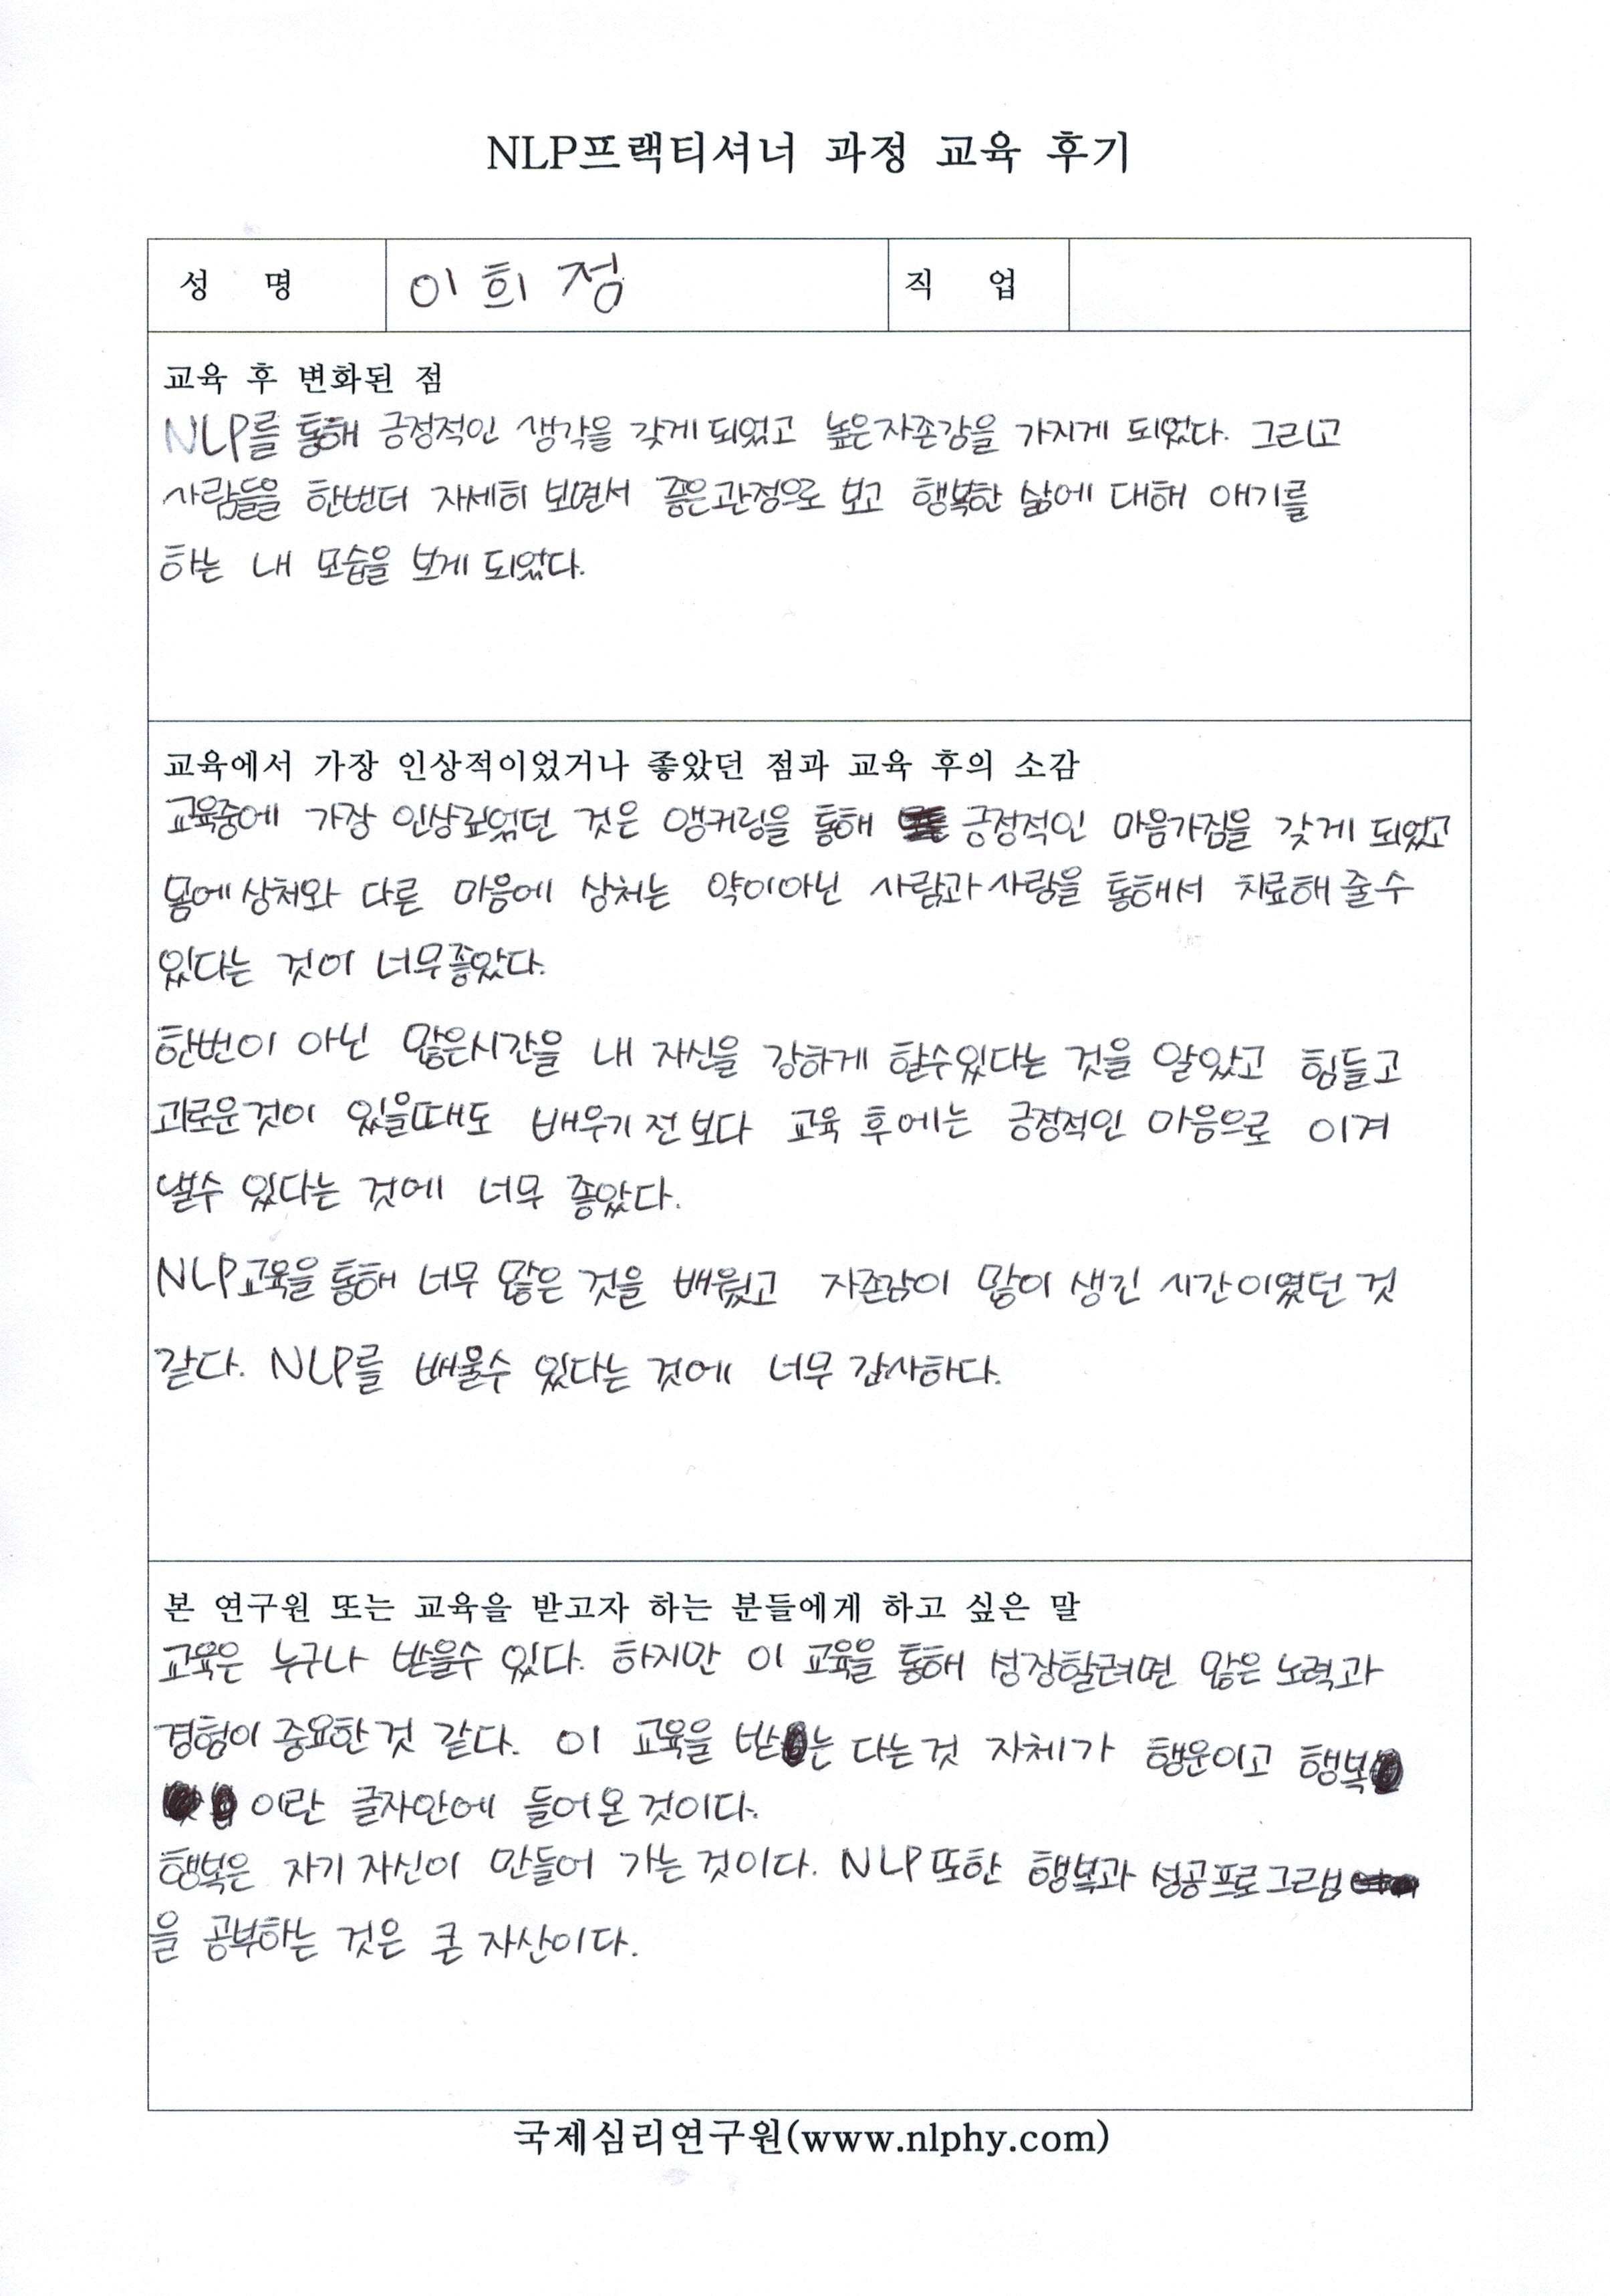 NLP프랙티셔너 과정 교육 후기
성 명 이희정 직 업
교육 후 변화된 점
NLP를 통해 긍정적인 생각을 갖게 되었고 높은자존감을 가지게 되었다. 그리고
사람들을 한번더 자세히 보면서 좋은관점으로 보고 행복한 삶에 대해 얘기를
하는 내 모습을 보게 되었다.
교육에서 가장 인상적이었거나 좋았던 점과 교육 후의 소감
교육중에 가장 인상깊었던 것은 앵커링을 통해 긍정적인 마음가짐을 갖게 되었고
몸에 상처와 다른 마음에 상처는 약이아닌 사람과 사랑을 통해서 치료해 줄수
있다는 것이 너무좋았다.
한번이 아닌 많은시간을 내 자신을 강하게 할수있다는 것을 알았고 힘들고
괴로운것이 있을때도 배우기 전 보다 교육 후에는 긍정적인 마음으로 이겨
낼수 있다는 것에 너무 좋았다.
NLP교육을 통해 너무 많은 것을 배웠고 자존감이 많이 생긴 시간이였던 것
같다. NLP를 배울수 있다는 것에 너무 감사하다.
본 연구원 또는 교육을 받고자 하는 분들에게 하고 싶은 말
교육은 누구나 받을수 있다. 하지만 이 교육을 통해 성장할려면 많은 노력과
경험이 중요한것 같다. 이 교육을 받는 다는것 자체가 행운이고 행복
이란 글자안에 들어온 것이다.
행복은 자기 자신이 만들어 가는 것이다. NLP 또한 행복과 성공프로그램
을 공부하는 것은 큰 자산이다.
국제심리연구원(www.nlphy.com)